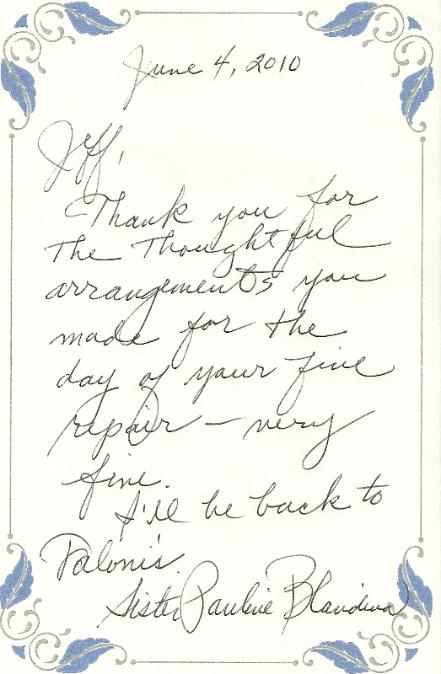 June 4, 2010
Jeff,
Thank you for
the thoughtful
arrangements you
made for the
day of your fine
repair – very
fine.
I'll be back to
Paloni's.
Sister Pauline Blandina